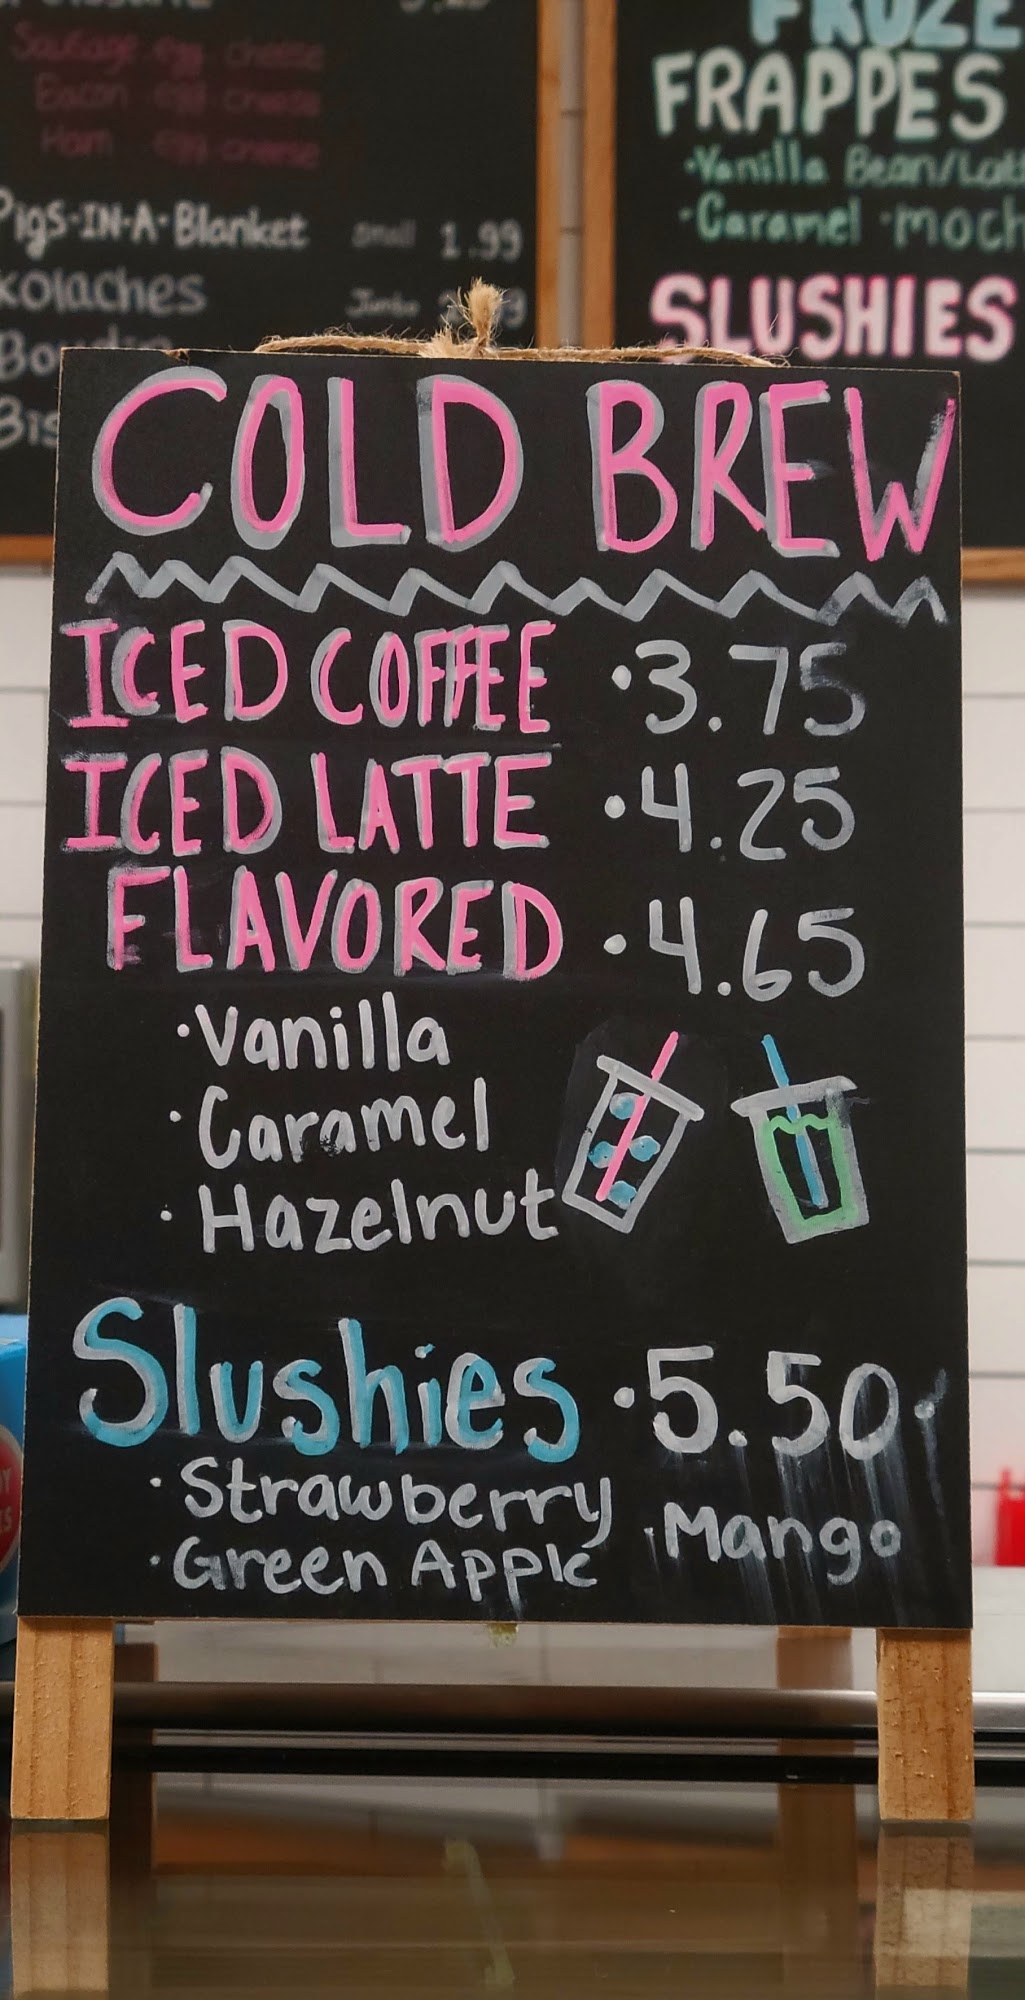 Sausage egg cheese
Bacon egg cheese
Ham egg cheese
Pigs-IN-A-Blanket small 1.99
Kolaches Jumbo
FROZE
FRAPPES
·Vanilla Bean/Latt
·Caramel ·moch
SLUSHIES
COLD BREW
ICED COFFEE ·3.75
ICED LATTE ·4.25
FLAVORED ·4.65
·Vanilla
·Caramel
·Hazelnut
Slushies ·5.50
·Strawberry ·Mango
·Green Apple